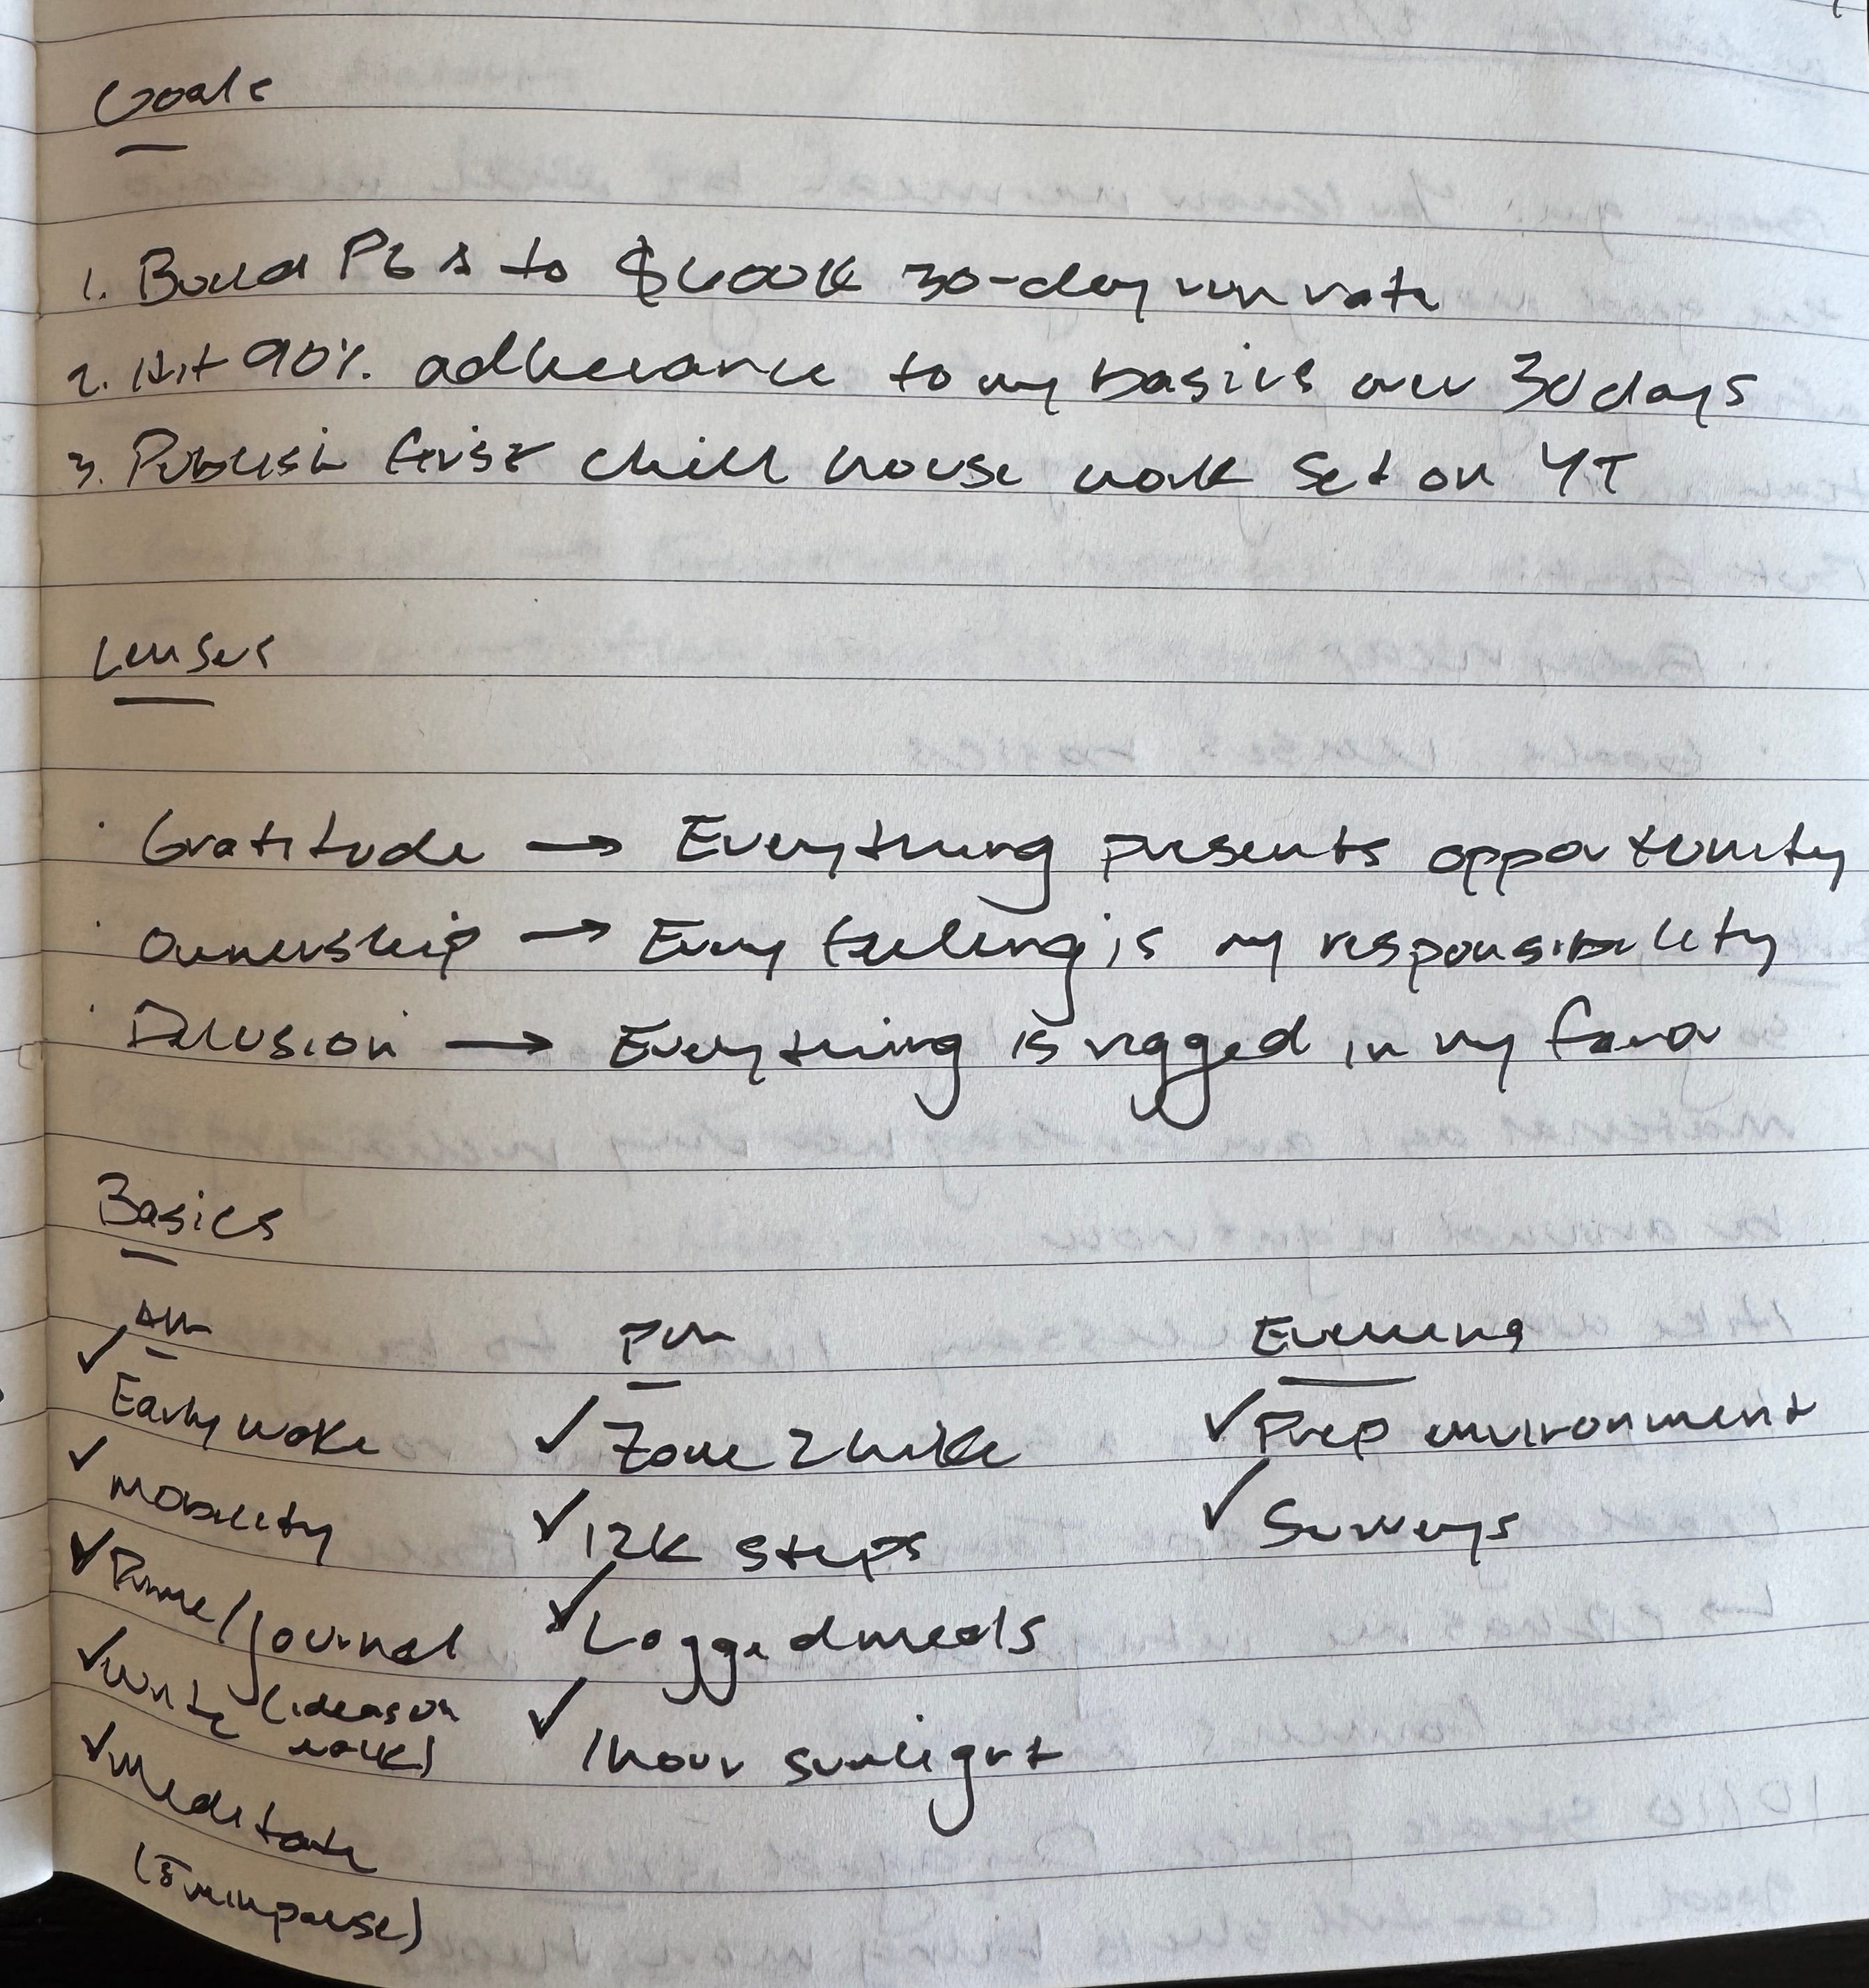 Goals
1. Build PGA to $400K 30-day run rate
2. Hit 90% adherance to my basics over 30 days
3. Publish first chill house work set on YT
Lenses
· Gratitude → Everything presents opportunity
· Ownership → Every feeling is my responsibility
· Delusion → Everything is rigged in my favor
Basics
AM
✓ Early wake
✓ Mobility
✓ Prime/journal
✓ Write (ideas or
work)
✓ Meditate
(5 min pause)
PM
✓ Zone 2 hike
✓ 12K steps
✓ Logged meals
✓ 1 hour sunlight
Evening
✓ Prep environment
✓ Surveys